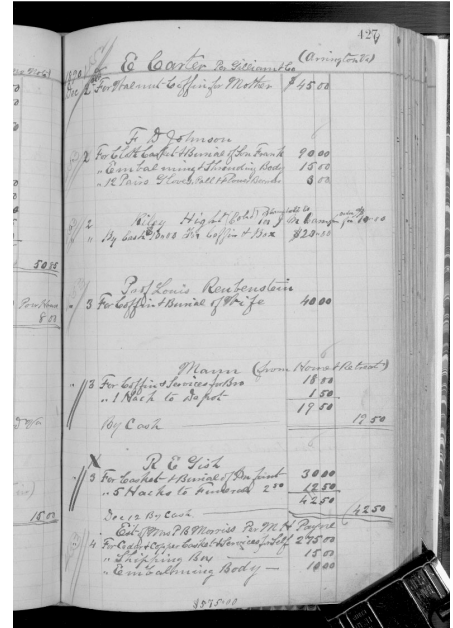 427
E Carter Per Gilliam & Co (Arrington Va)
1890
Dec 2 For Walnut Coffin for Mother $45.00
F D Johnson
2 For Cloth Casket & Burial of Son Frank 90 00
" Embalming & Shrouding Body 15 00
" 12 Pairs Gloves 6 00
2 Riley Hight (Col'd)
" By Cash Box For Coffin & Box $23.00
50.85
Prof Louis Reubenstein
3 For Coffin & Burial of Wife 40 00
8.00
Mann (from Home & Retreat)
3 For Coffin & Services for Bro 18 00
" 1 Hack to Depot 1 50
19 50
By Cash 19 50
X R E Gish
3 For Casket & Burial of 30 00
" 5 Hacks to Funeral 2 50 12 50
42 50
Dec 12 By Cash 42 50
15.00
Est of Mrs P B Morriss Per M H Payne
4 For Cedar & Copper Casket & Services for Self 275 00
" Shipping Box 15 00
" Embalming Body 10 00
$575.00